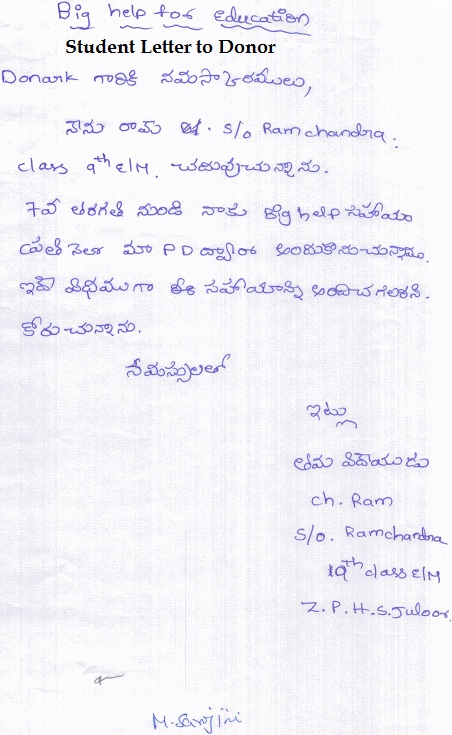 Big help for education
Student Letter to Donor
Donark గారికి నమస్కారములు,
నేను రామ్ ch. S/o Ramchandra.
class 9th E/M. చదువుచున్నాను.
7వ తరగతి నుండి నాకు Big help సహాయం
ప్రతి నెలా మా PD ద్వారా అందుకొనుచున్నాను.
ఇదే విధముగా ఈ సహాయాన్ని అందించగలరని.
కోరుచున్నాను.
ఇట్లు
తమ విదేయుడు
Ch. Ram
S/o. Ramchandra
9th class E/M
Z.P.H.S. Juloor.
M. Sarojini